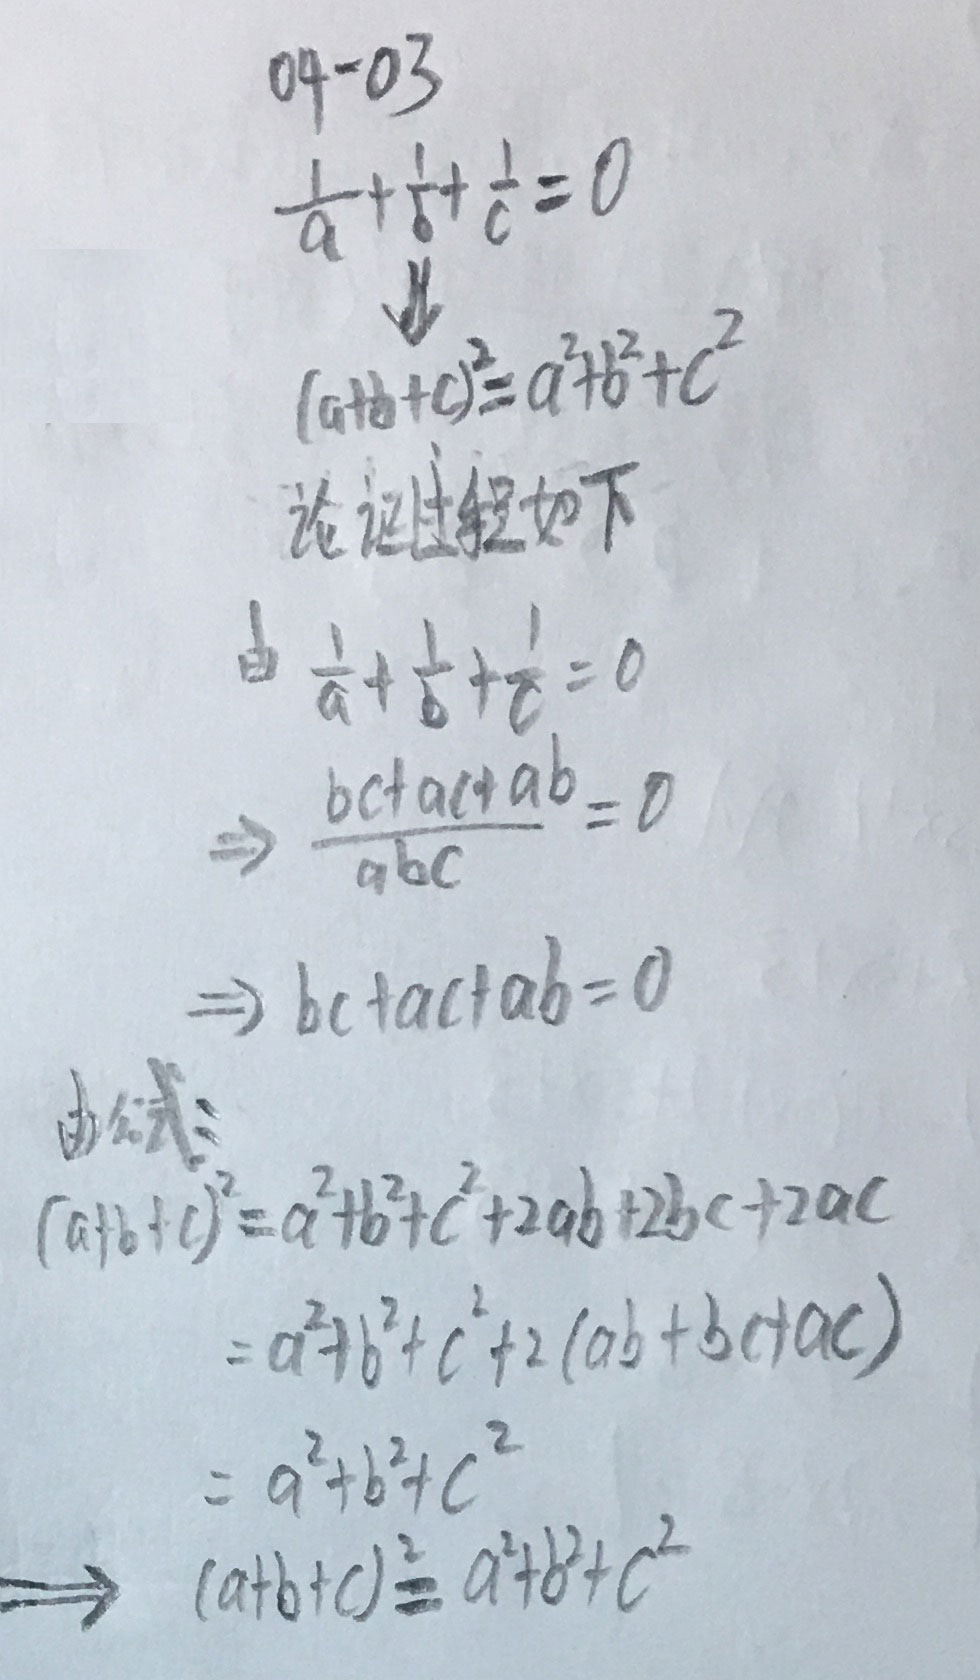 04-03
1/a + 1/b + 1/c = 0
⇓
(a+b+c)² = a²+b²+c²
论证过程如下
由 1/a + 1/b + 1/c = 0
⇒ (bc+ac+ab)/abc = 0
⇒ bc+ac+ab = 0
由公式:
(a+b+c)² = a²+b²+c²+2ab+2bc+2ac
= a²+b²+c²+2(ab+bc+ac)
= a²+b²+c²
⟹ (a+b+c)² = a²+b²+c²